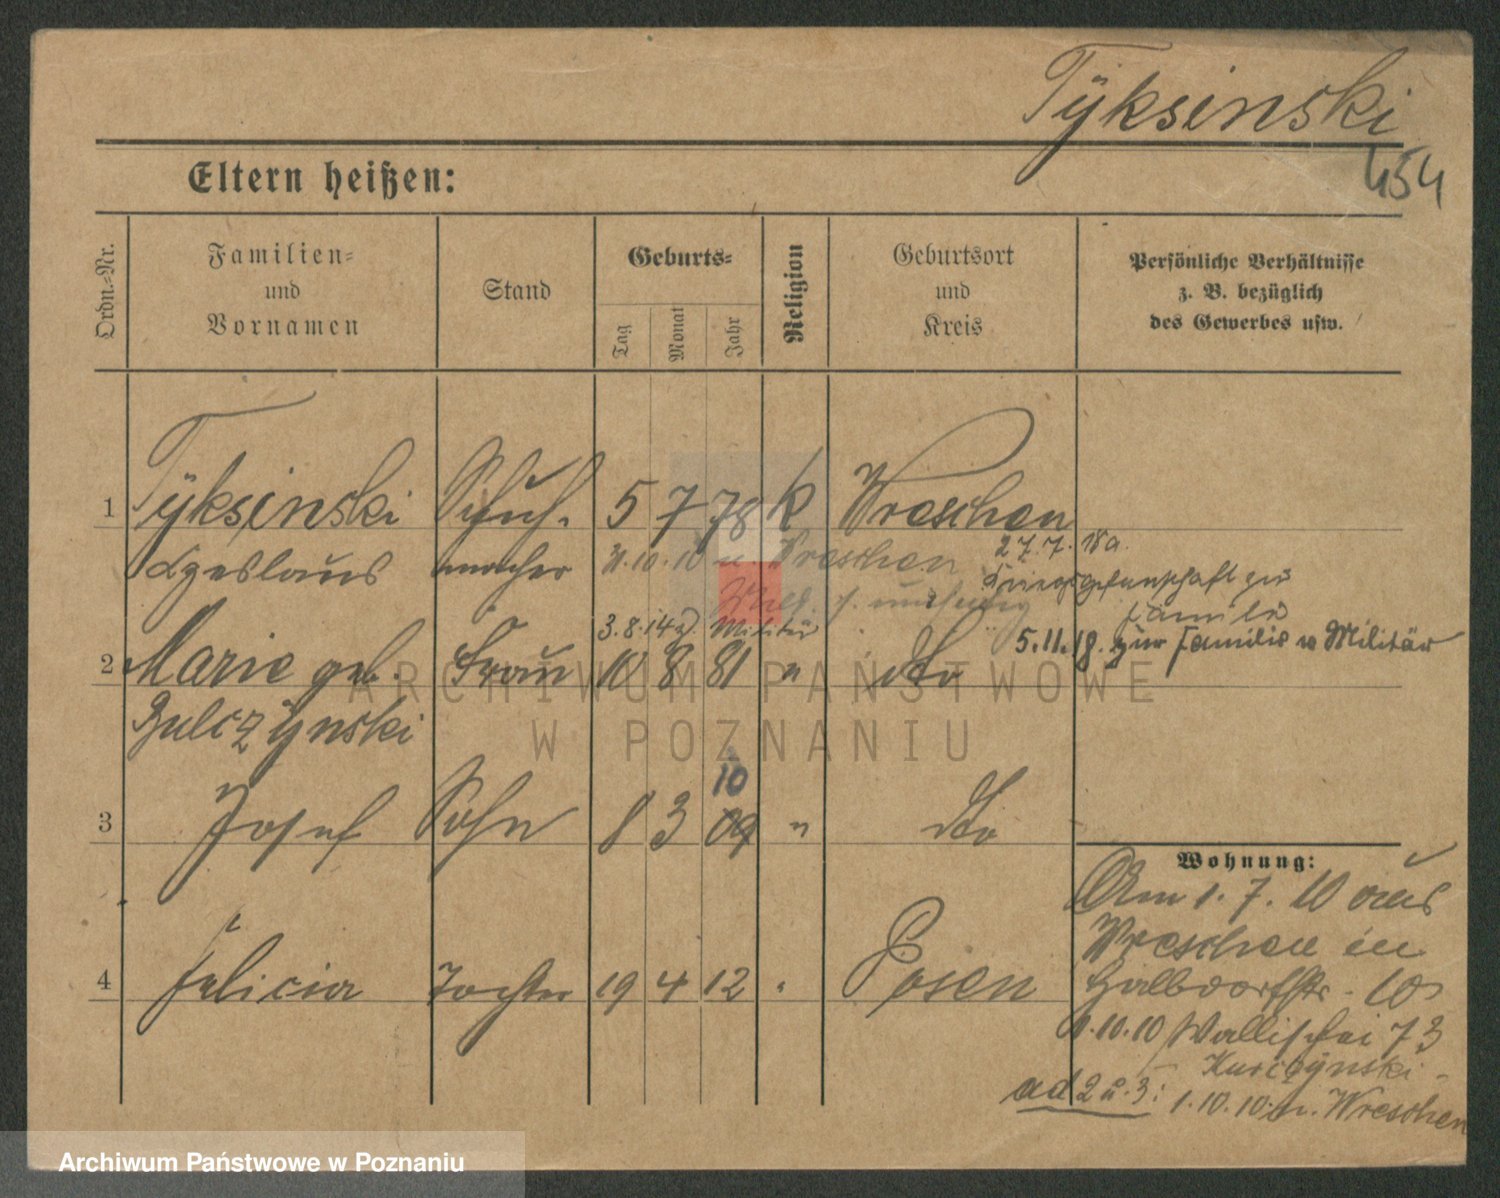 Tÿksinski
454
Eltern heißen:
Ordn.-Nr.
Familien-
und
Vornamen
Stand
Geburts-
Tag
Monat
Jahr
Religion
Geburtsort
und
Kreis
Persönliche Verhältnisse
z. B. bezüglich
des Gewerbes usw.
1 Tÿksinski Schuh- 5 7 78 k Wreschen
Czeslaus macher 31.10.10 n Wreschen 27.7.18 a.
Kriegsgefangschaft zur
Familie
3.8.14 z. Militär 5.11.18. zur Familie v Militär
2 Marie geb. Frau 10 8 81 " do
Bulczÿnski
10
3 Josef Sohn 8 3 09 " do
Wohnung:
Am 1.7.10 aus
Wreschen in
4 Felicia Tochter 19 4 12 " Posen Halbdorfstr. 10
1.10.10 Wallischei 73
Kurczÿnski
ad 2 u. 3: 1.10.10 n. Wreschen
ARCHIWUM PAŃSTWOWE
W POZNANIU
Archiwum Państwowe w Poznaniu